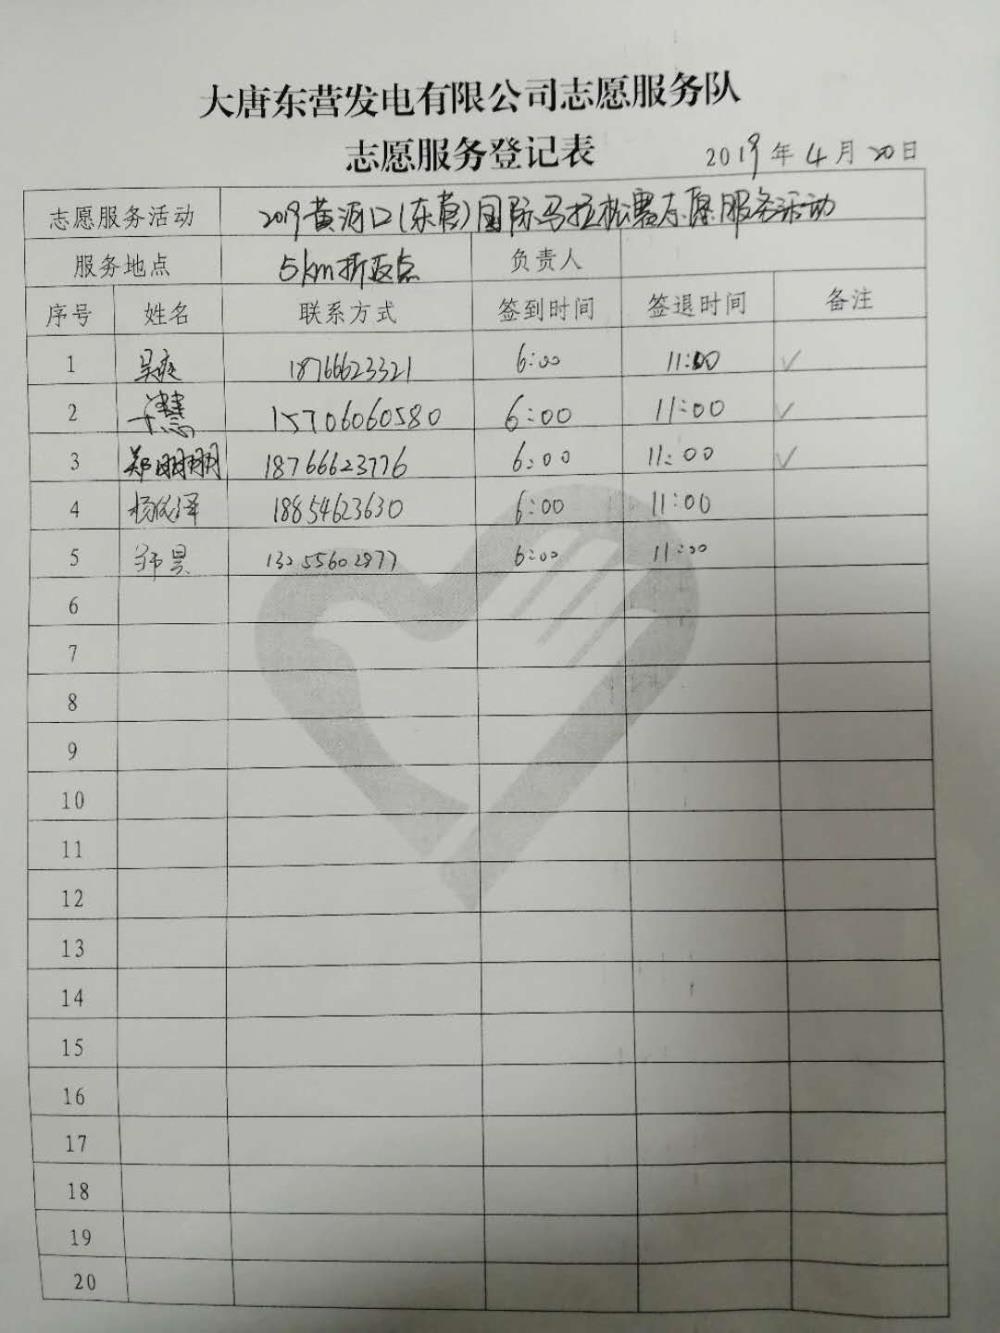 大唐东营发电有限公司志愿服务队
志愿服务登记表
2019年4月20日
志愿服务活动 2019黄河口(东营)国际马拉松赛志愿服务活动
服务地点 5km折返点 负责人
序号 姓名 联系方式 签到时间 签退时间 备注
1 吴爽 18766623321 6:00 11:00 ✓
2 15706060580 6:00 11:00 ✓
3 郑明明 18766623776 6:00 11:00 ✓
4 18854623630 6:00 11:00
5 13255602977 6:00 11:00
6
7
8
9
10
11
12
13
14
15
16
17
18
19
20